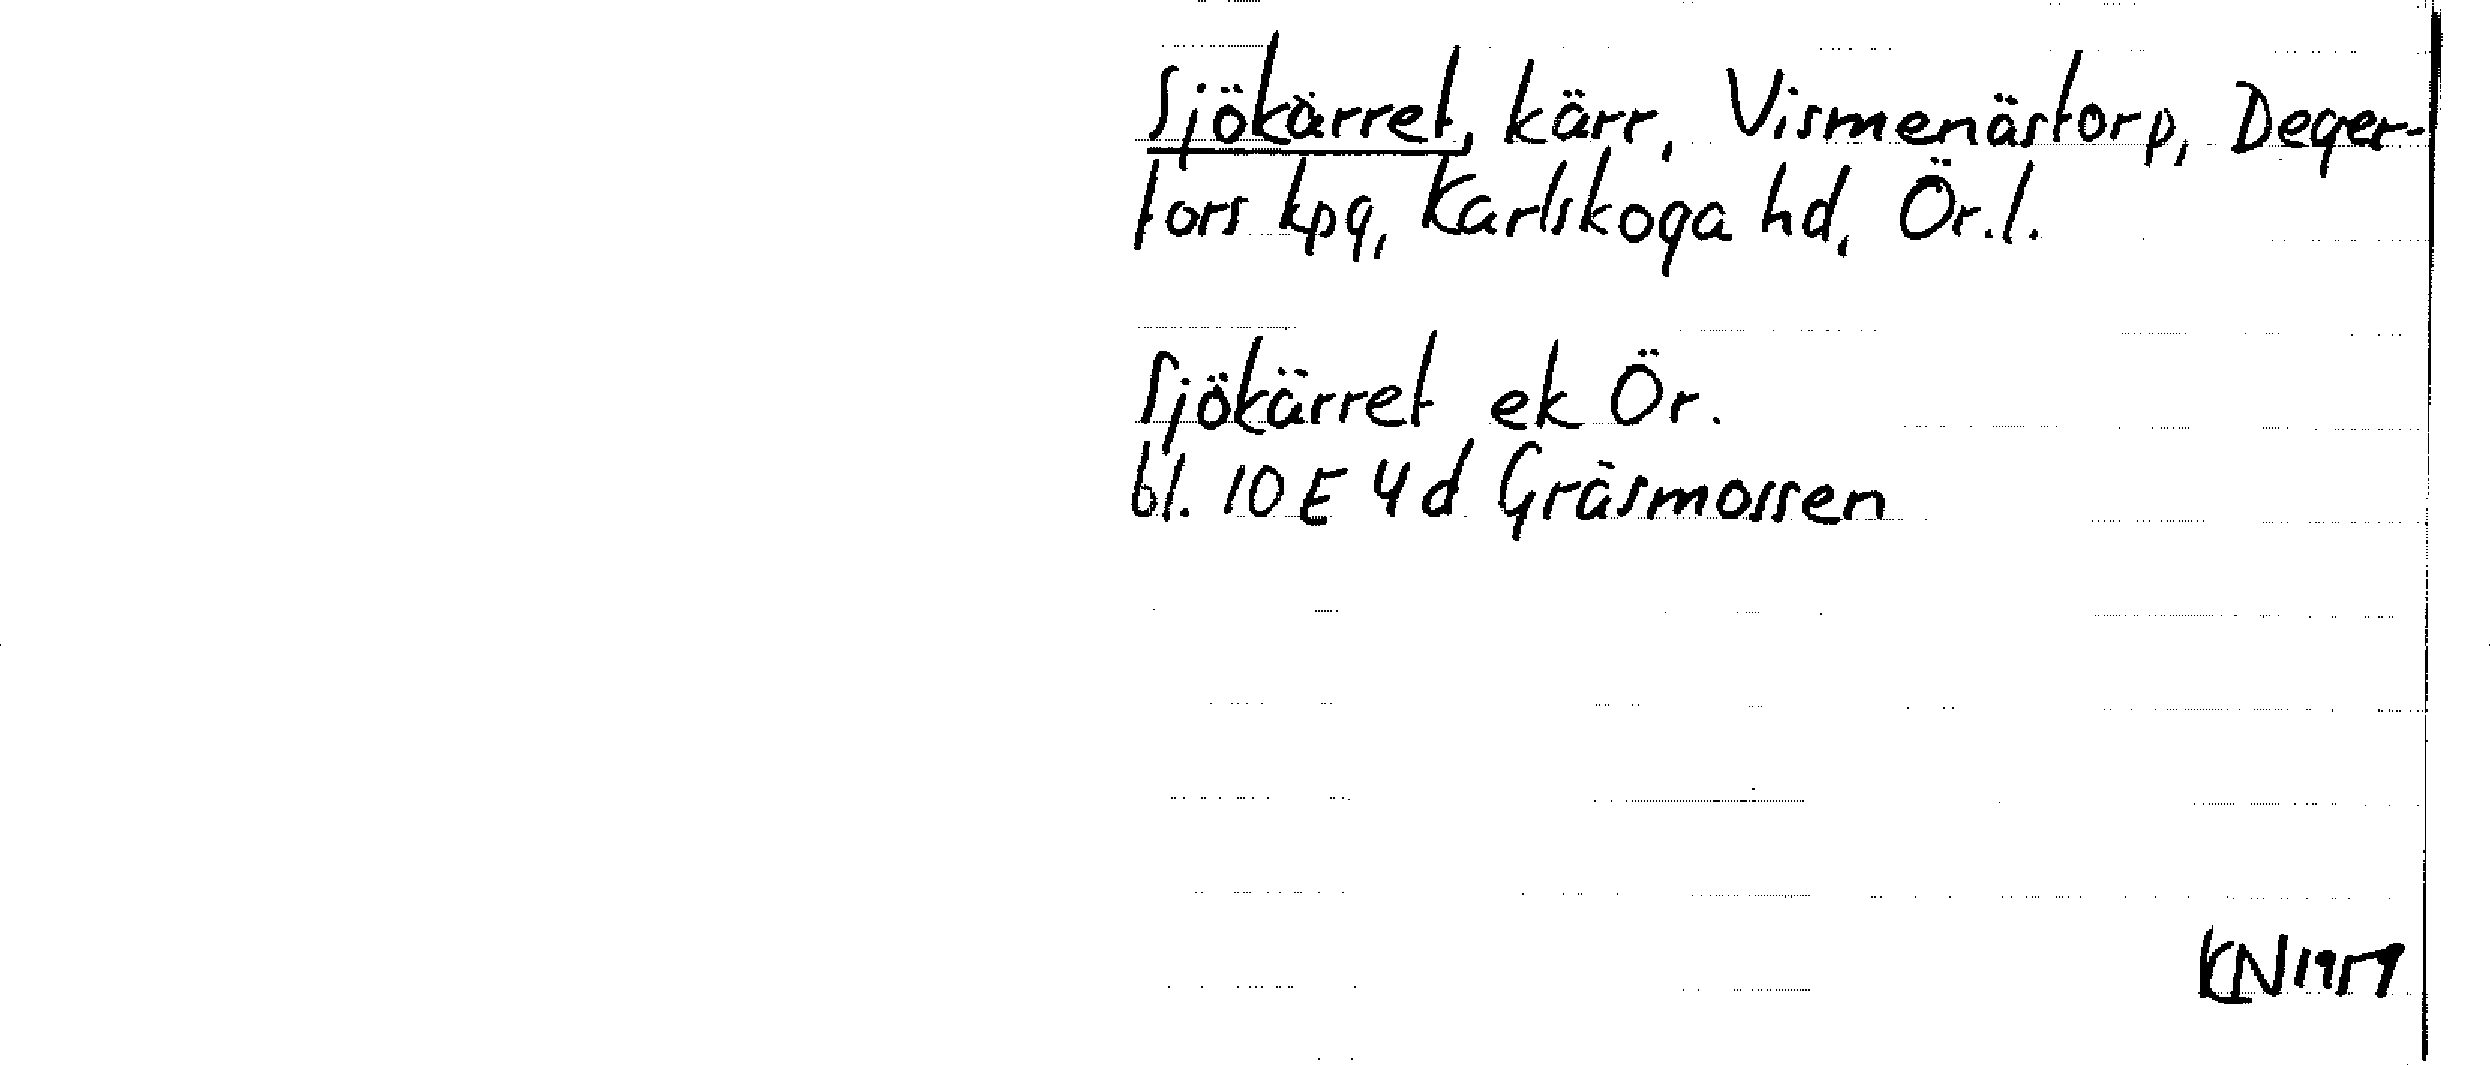 Sjökärret, kärr, Vismenästorp, Deger-
fors kpg, Karlskoga hd, Ör.l.
Sjökärret ek Ör.
bl. 10 E 4d Gräsmossen
KN